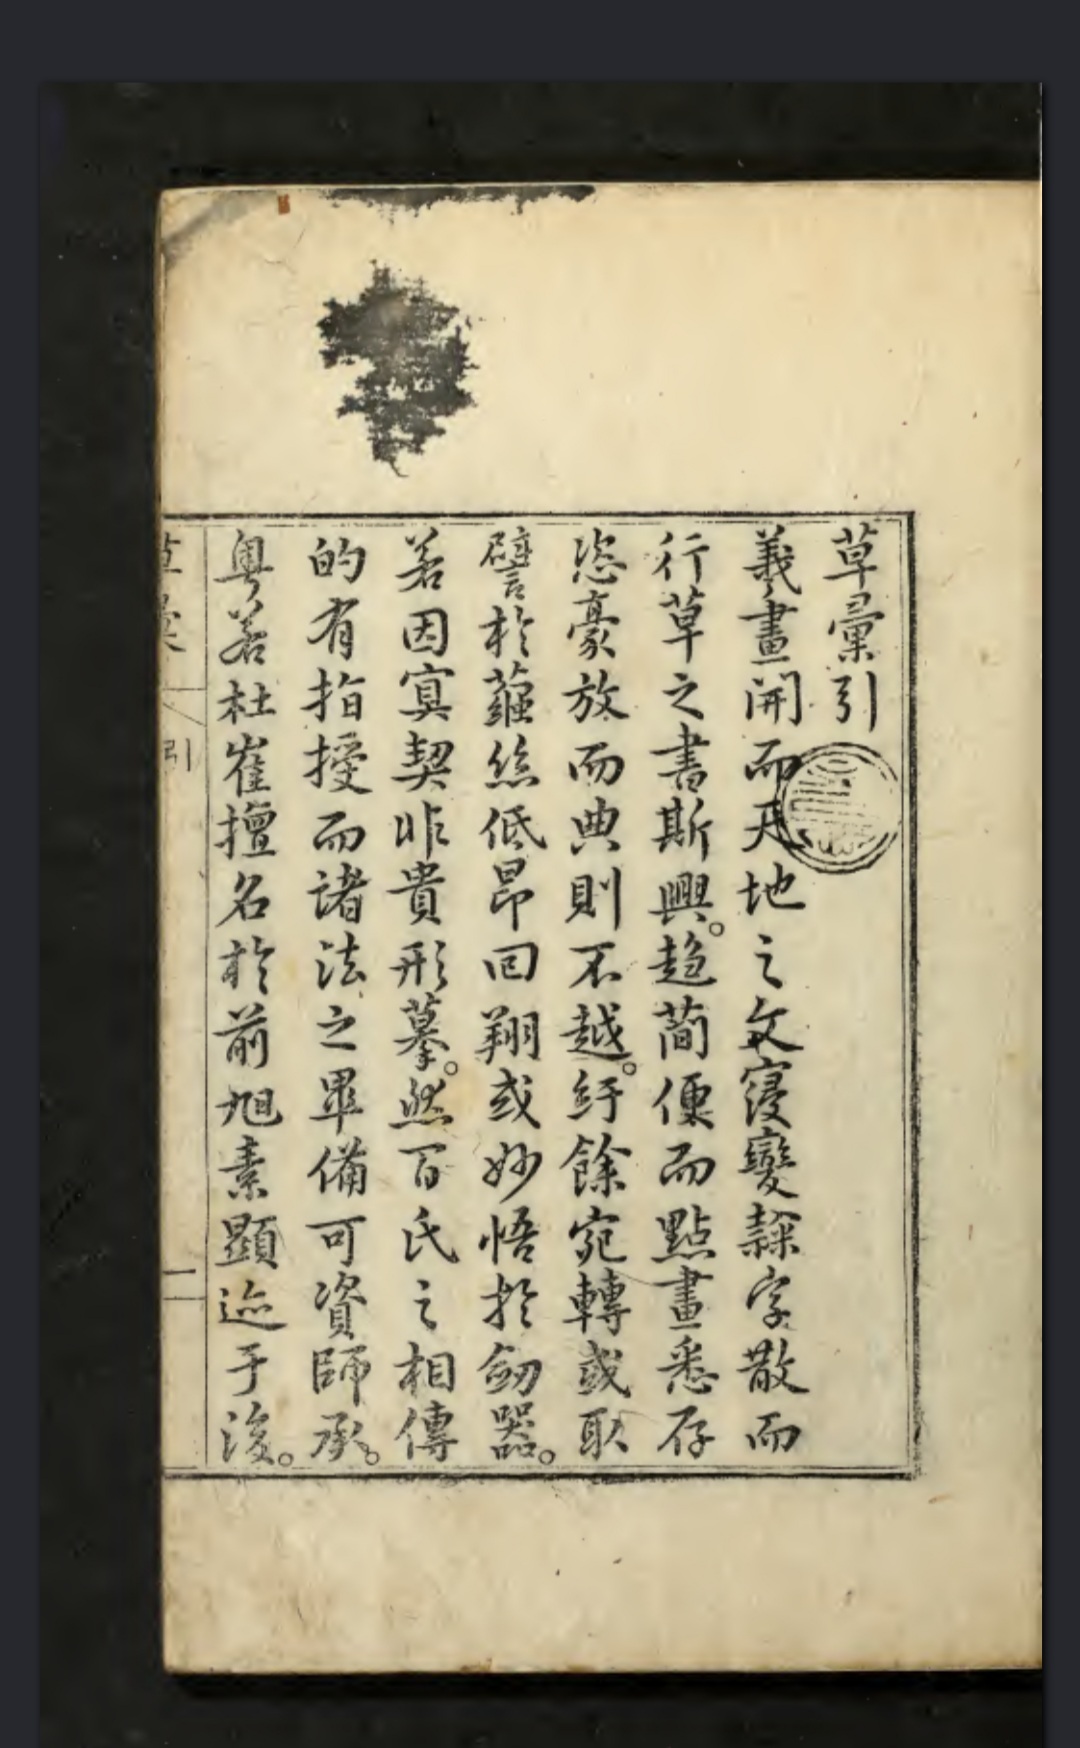 草彙引
羲畫開而天地之文寖變隸字散而
行草之書斯興。趋簡便而點畫悉存
恣豪放而典則不越。紆餘宛轉或取
譬於繭絲低昂回翔或妙悟於劒器。
若因冥契非貴形摹。然百氏之相傳
的有指授而諸法之畢備可資師承。
粤若杜崔擅名於前旭素顯迹于後。
草彙
引
一